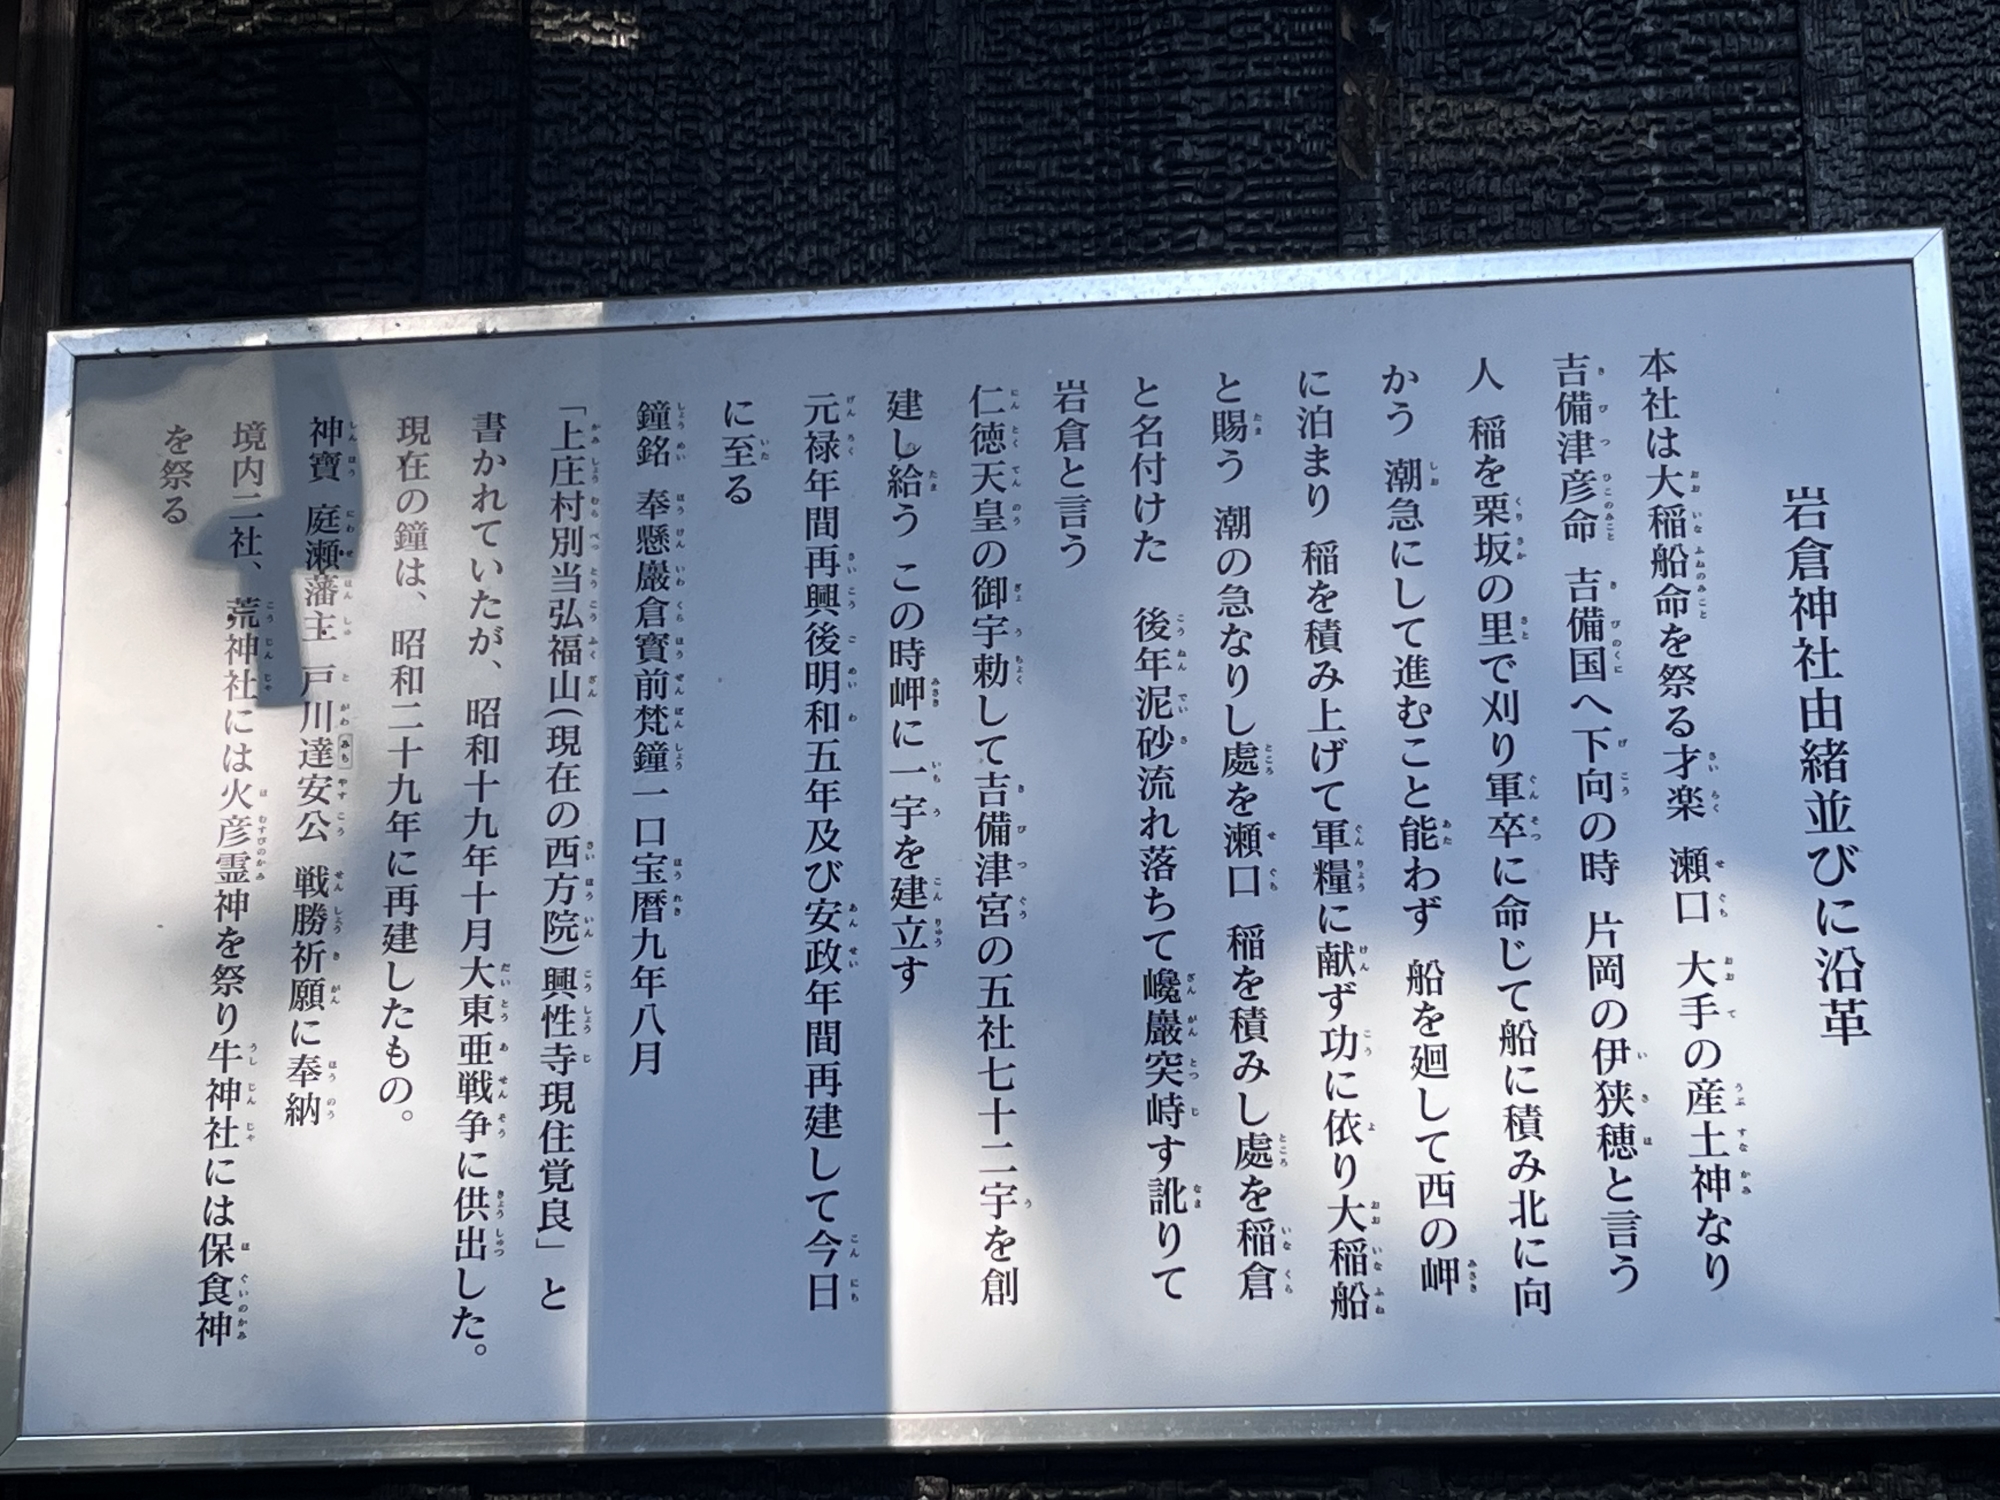 岩倉神社由緒並びに沿革
本社は大稲船命を祭る才楽 瀬口 大手の産土神なり
吉備津彦命 吉備国へ下向の時 片岡の伊狭穂と言う
人 稲を栗坂の里で刈り軍卒に命じて船に積み北に向
かう 潮急にして進むこと能わず 船を廻して西の岬
に泊まり 稲を積み上げて軍糧に献ず功に依り大稲船
と賜う 潮の急なりし處を瀬口 稲を積みし處を稲倉
と名付けた 後年泥砂流れ落ちて巉巖突峙す訛りて
岩倉と言う
仁徳天皇の御宇勅して吉備津宮の五社七十二宇を創
建し給う この時岬に一宇を建立す
元禄年間再興後明和五年及び安政年間再建して今日
に至る
鐘銘 奉懸巖倉寳前梵鐘一口宝暦九年八月
「上庄村別当弘福山(現在の西方院)興性寺現住覚良」と
書かれていたが、昭和十九年十月大東亜戦争に供出した。
現在の鐘は、昭和二十九年に再建したもの。
神寶 庭瀬藩主 戸川達安公 戦勝祈願に奉納
境内二社、荒神社には火彦霊神を祭り牛神社には保食神
を祭る